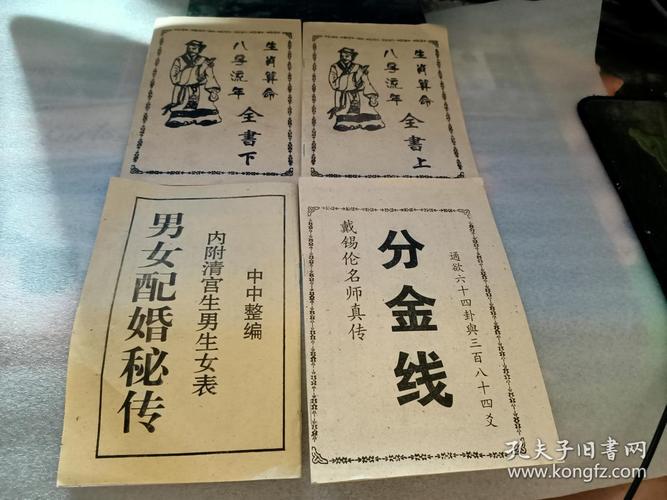 生肖算命
八字流年
全書下
生肖算命
八字流年
全書上
中中整编
内附清宫生男生女表
男女配婚秘传
通欲六十四卦與三百八十四爻
分金线
戴锡伦名师真传
孔夫子旧书网
www.kongfz.com